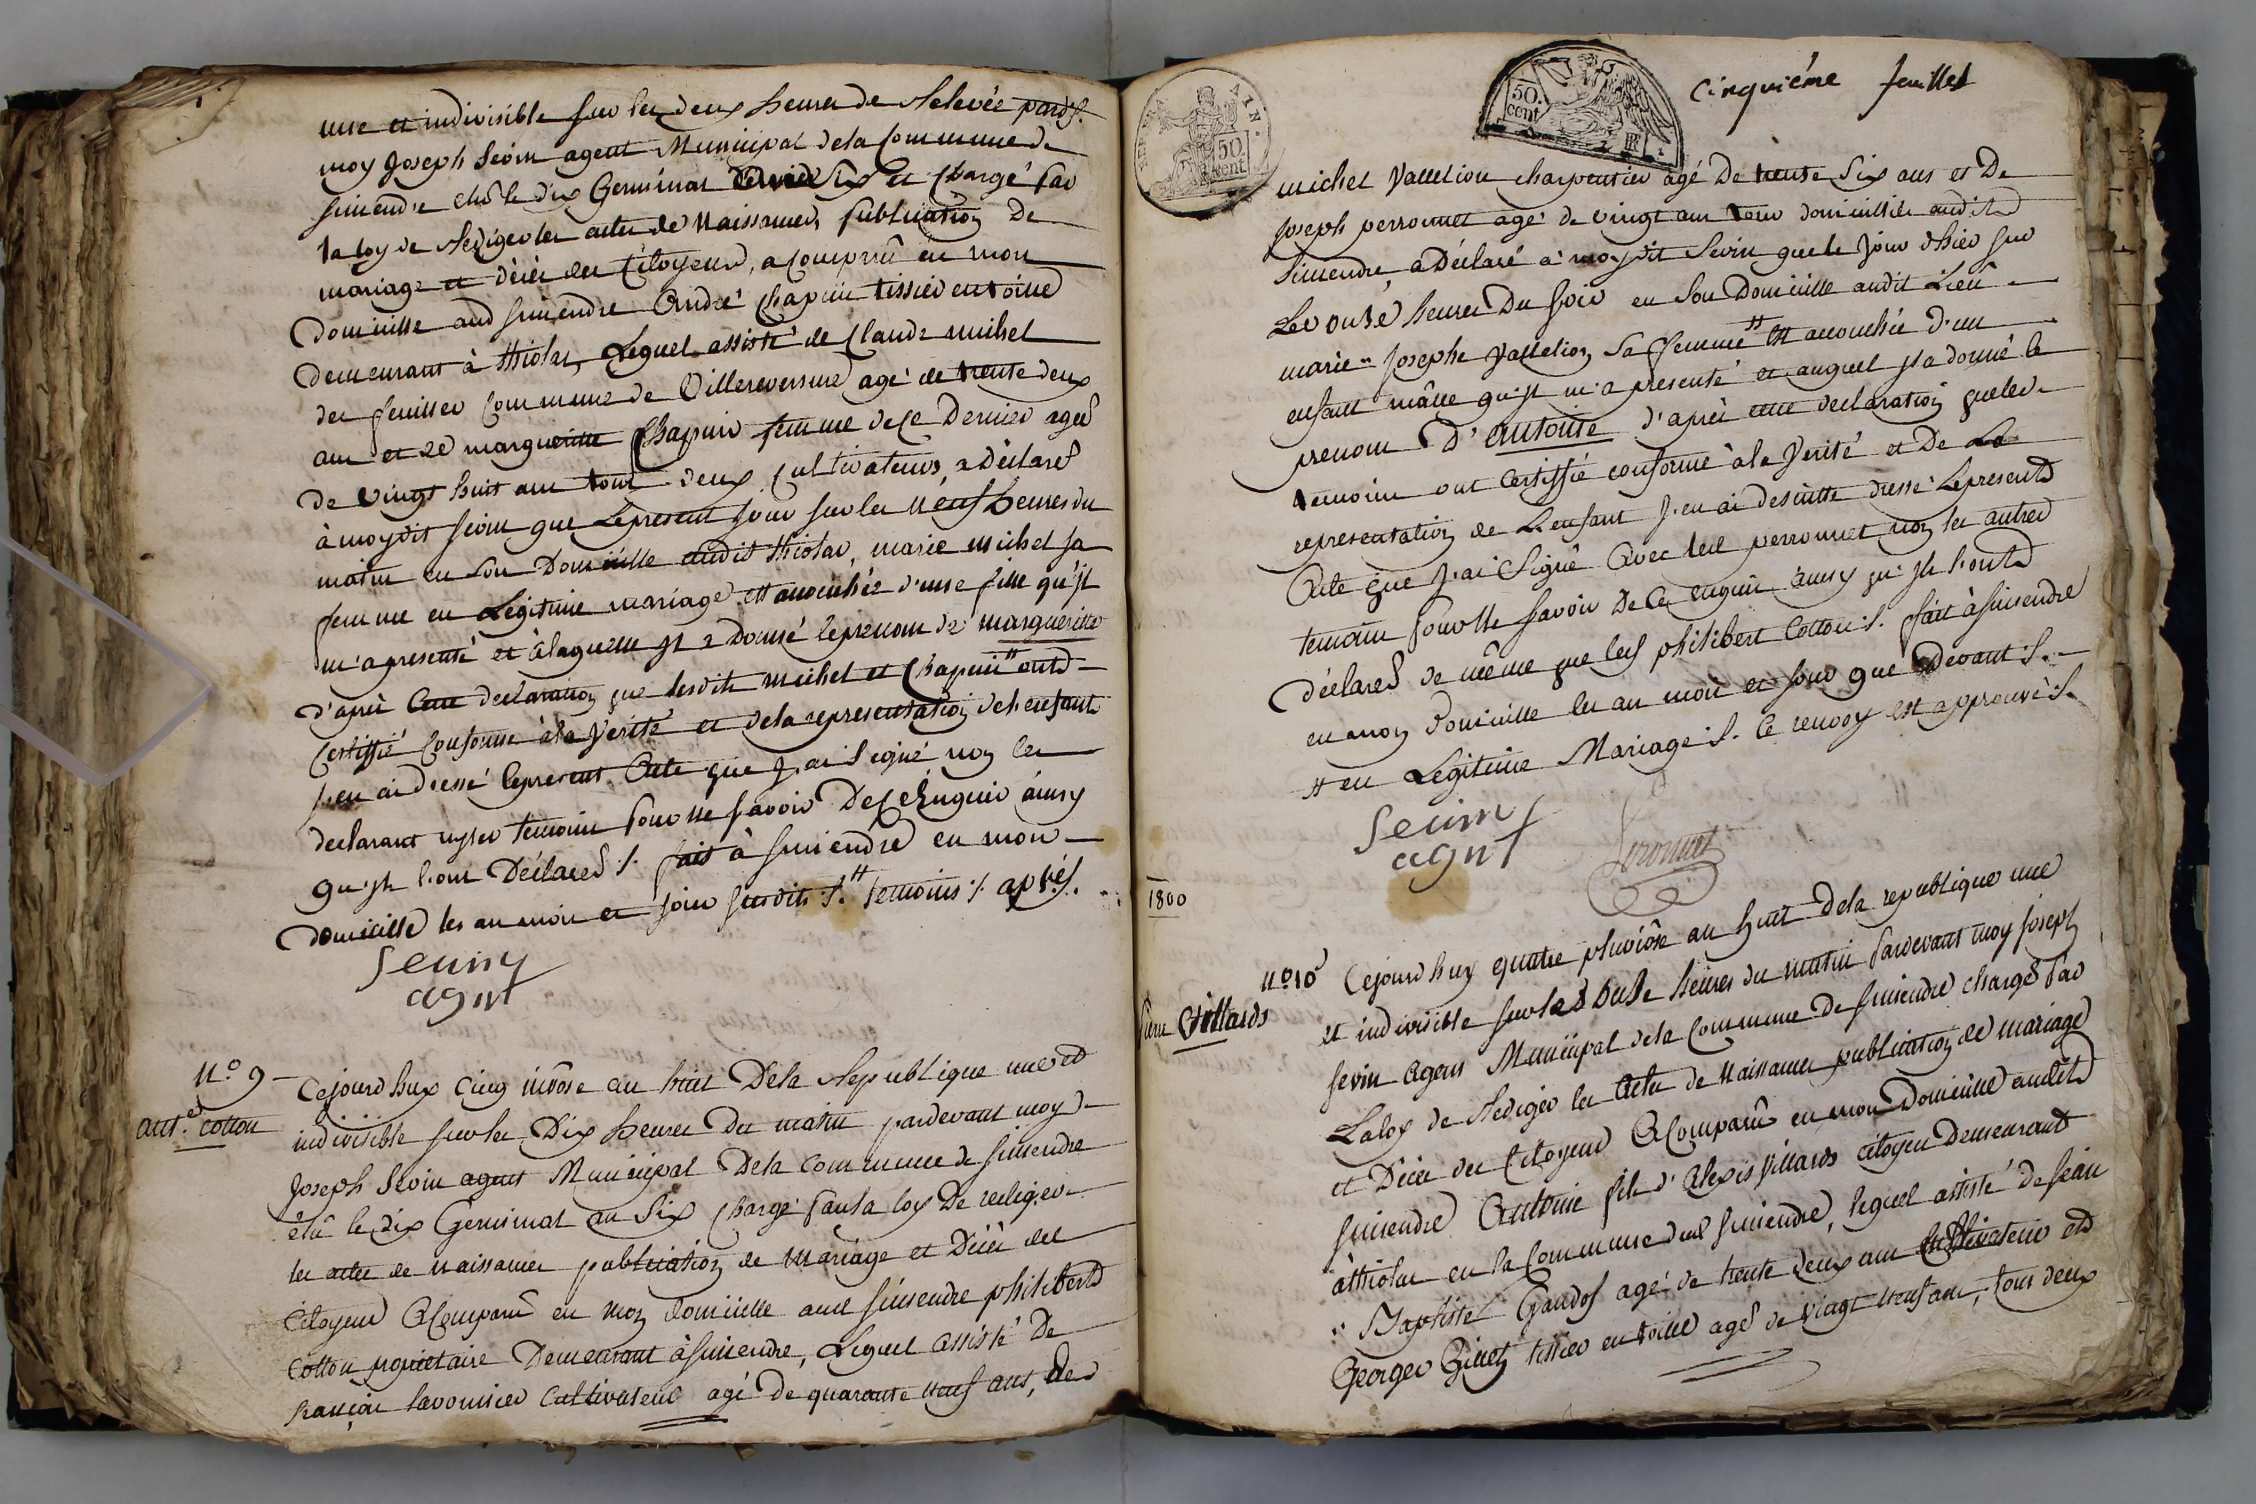 une et indivisible sur les deux heures de Relevée pard.
moy Joseph Sevin agent Municipal dela Commune de
simendre elû le dix Germinal Six et Chargé par
la loy de Rediger les actes de Naissances, publication de
mariage et décès des Citoyens, a comparû en mon
Domicille aud simendre André Chapuis tissier en toille
demeurant à thiolas, Lequel assisté de Claude michel
commune de Villereversure agé de trente deux
ans et de marguerite Chapuis femme de ce Dernier agée
de vingt huit ans tous deux Cultivateurs, a Déclaré
à moy dit sevin que Lepresent jour sur les Neuf heures du
matin en son Domicille audit thiolas, marie michel sa
femme en Légitime mariage est accouchée d'une fille qu'jl
m'a presenté et à laquelle jl a Donné leprenom de marguerite
d'après Cette declaration que lesdits michel et Chapuis # ont
Certiffié Conforme à la Verité et dela representation del'enfant
j'en ai dressé lepresent Acte que j'ai Signé non les
declarant ny les temoins pour ne savoir De ce Enquis ainsy
qu'jls l'ont Déclaré ./. fait à simendre en mon
domicille les an mois et jour susdits ./. # temoins ./. apvé ./.
Sevin
agnt
N.º 9
ant.e cotton
Cejourdhuy Cinq nivôse an huit Dela Republique une et
indivisible sur les Dix heures Du matin pardevant moy
Joseph Sevin agent Municipal Dela Commune de simendre
élû le dix Germinal an Six Chargé par la loy De rediger
les actes de naissances publication de mariage et Décès des
Citoyens A Comparû en mon domicille aud simendre philibert
Cotton proprietaire Demeurant à simendre, Lequel assisté De
françois lavornier Cultivateur agé de quarante neuf ans, de
cinquiéme feuillet
50. cent
50 cent
michel Vallelion charpentier agé De trente Six ans et De
Joseph perronnet agé de vingt ans tous domicilliés audit
simendre, a Déclaré à moy dit Sevin que le Jour d'hier sur
Les onze heures Du soir en Son Domicille audit Lieu
marie Josephe Vallelion Sa femme # est accouchée d'un
enfant mâle qu'jl m'a presenté et auquel jl a donné le
prenom D'antoine d'après cette declaration que les
temoins ont certiffié conforme à la Verité et De la
representation de L'enfant j'en ai desuitte dressé Lepresent
Acte que j'ai Signé avec led perronnet non les autres
temoins pour ne savoir De ce enquis ainsy qu'jls l'ont
déclaré de même que led philibert Cotton ./. fait à simendre
en mon domicille les an mois et jour que Devant ./.
# en Légitime Mariage ./. Ce renvoy est approuvé ./.
Sevin
agnt
Peronnet
1800
N.º 10
Villards
Cejourdhuy quatre pluviôse an huit dela republique une
et indivisible sur les onze heures du matin pardevant moy joseph
sevin Agent Municipal dela Commune De simendre chargé par
La loy de Rediger les Actes de Naissances publication de mariage
et Décès des Citoyens A Comparû en mon Domicille audit
simendre Antoine fils d'Alexis Villards citoyen Demeurant
à thiolas en la Commune dud simendre, lequel assisté de jean
Baptiste Gaudof agé de trente deux ans Cultivateur et
George tissier en toille agé de vingt neuf ans, tous deux